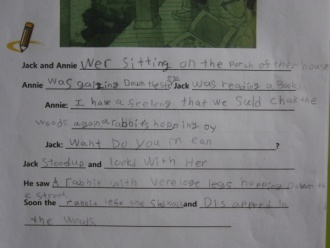 Jack and Annie Wer sitting on the porsh of ther house
Annie was gazing Down the Jack was reading a Book
Annie: I have a feeling that we Suld chak the
woods a rabbit's hopping by
Jack: Want Do you mean ?
Jack Stood up and looks With Her
He saw A rabbit with legs hopping Down th
e street
Soon the rabbit's legs and Dis apperd in
the woods